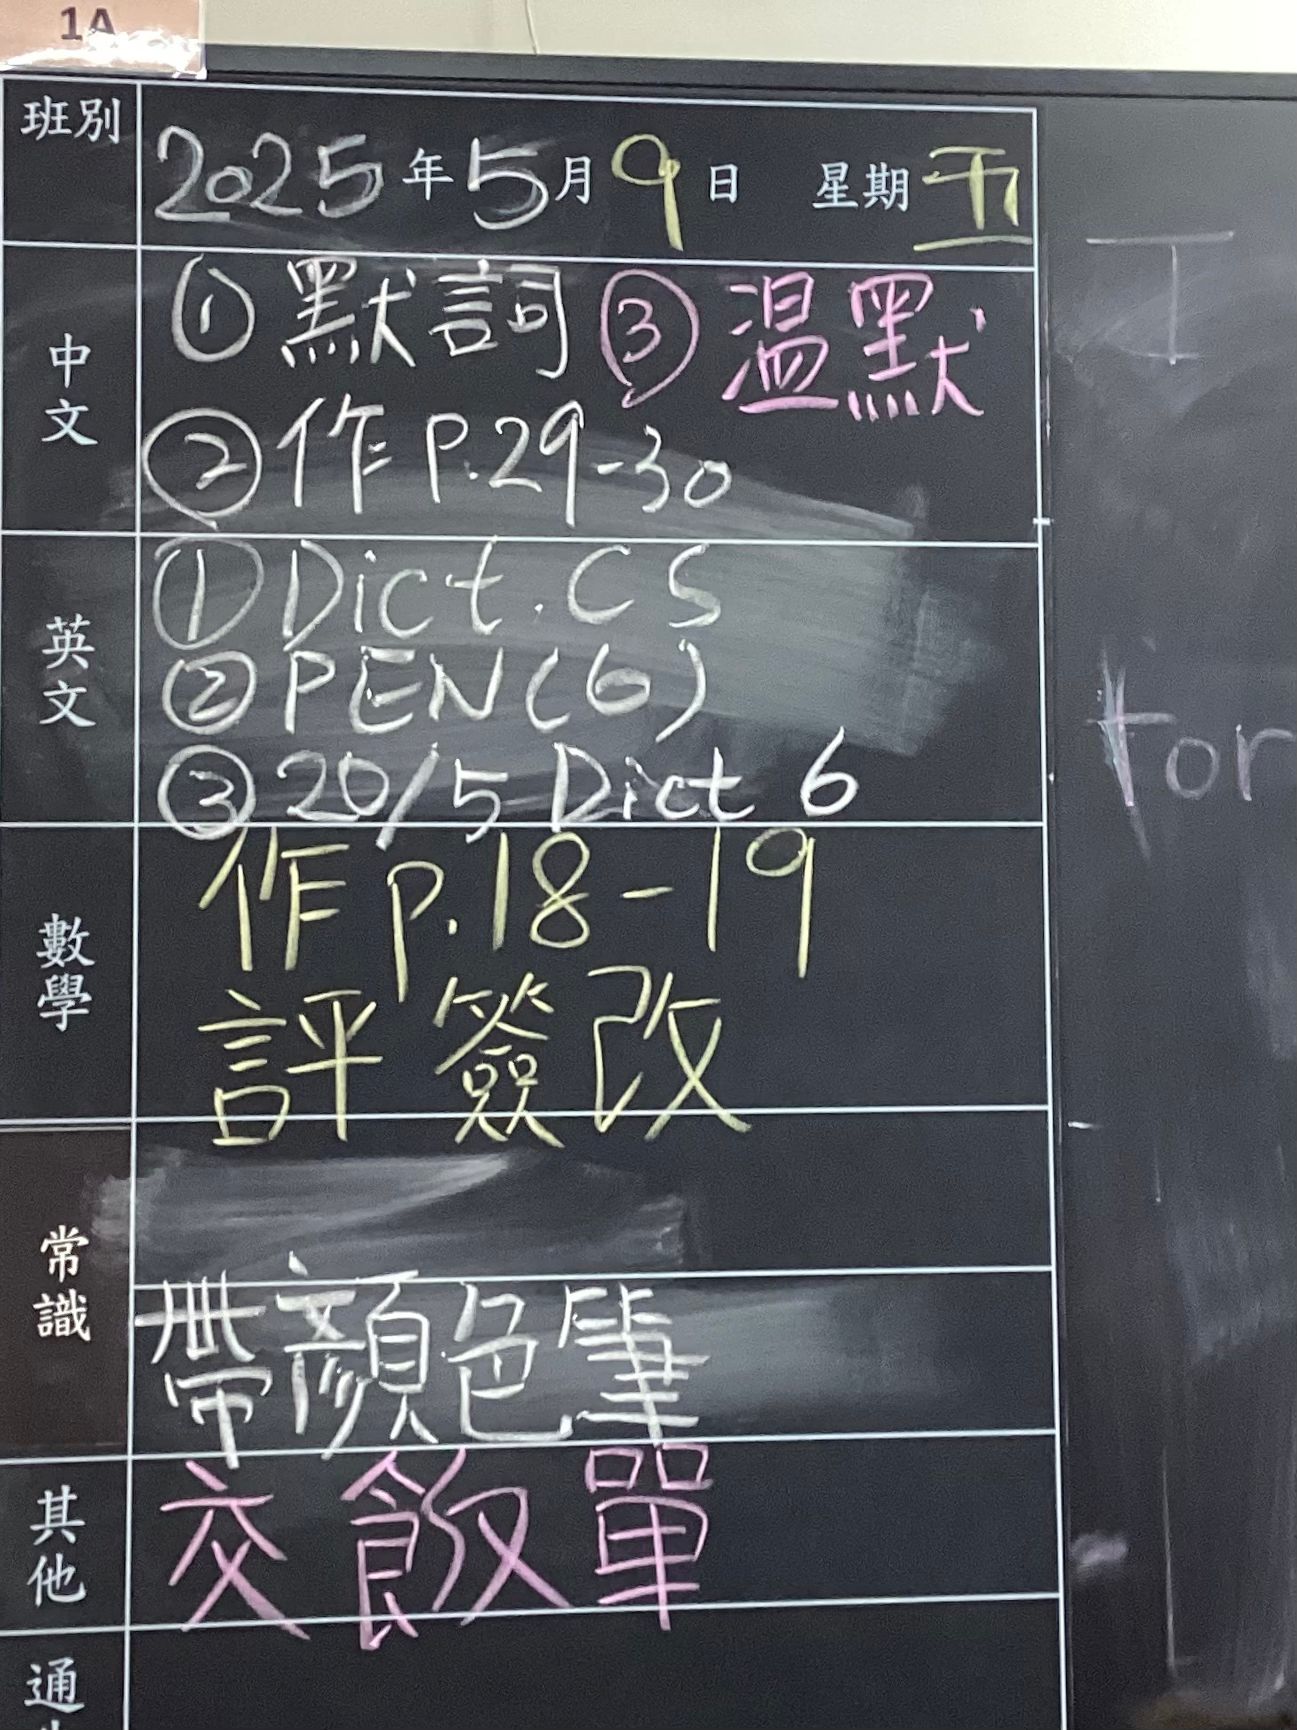 1A
班別
2025年5月9日 星期五
中文
① 默詞 ③ 温默
② 作 P.29-30
英文
① Dict. CS
② PEN(6)
③ 20/5 Dict 6
數學
作 p.18-19
評 簽 改
常識
帶顏色筆
其他
交 飯 單
通
for